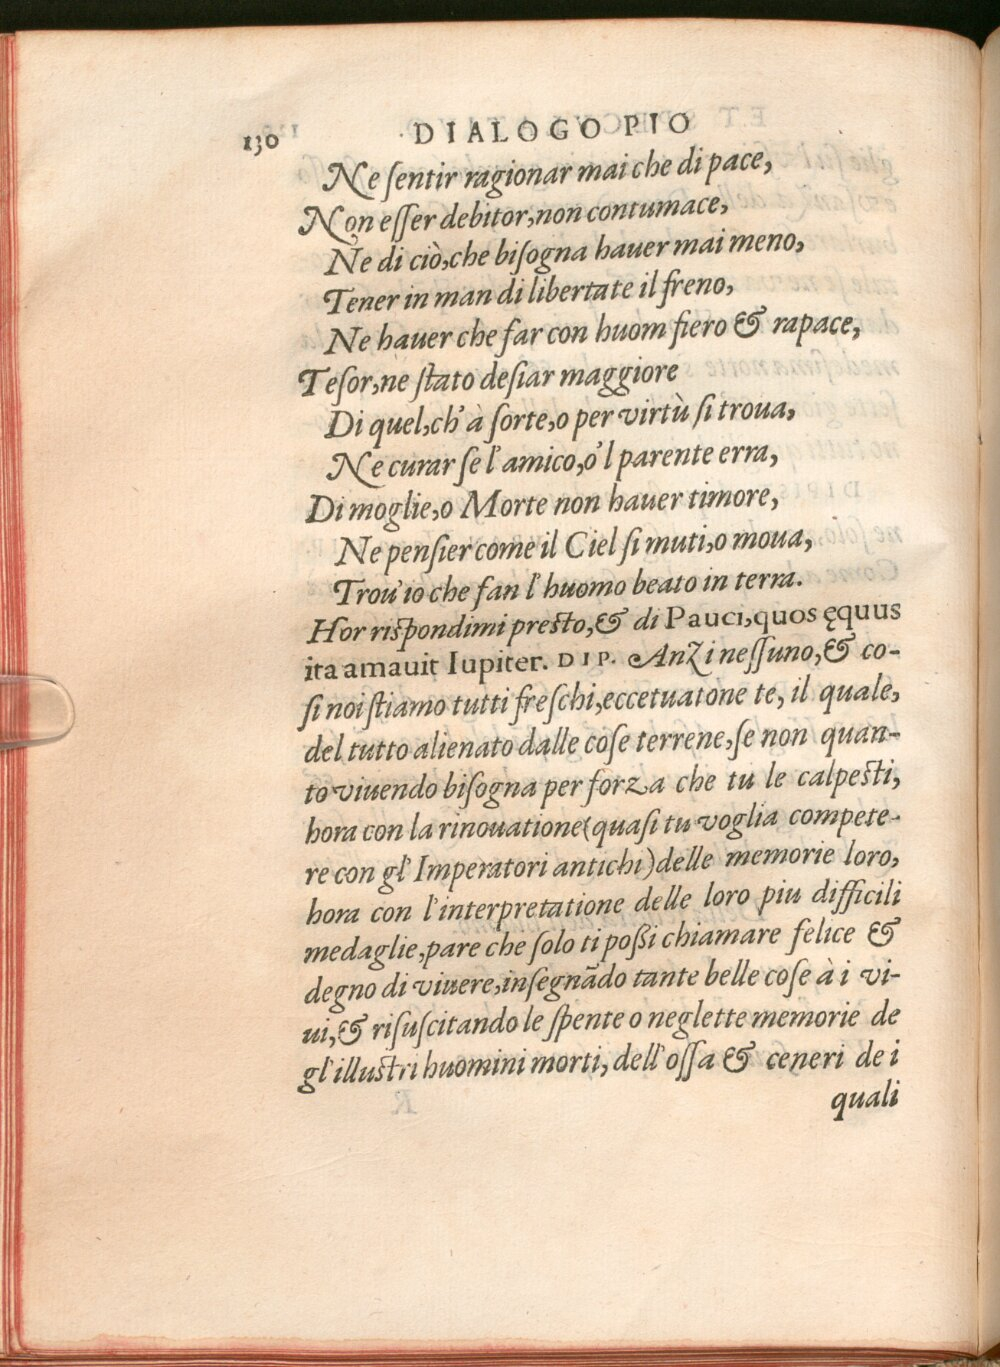 130 DIALOGO PIO
Ne sentir ragionar mai che di pace,
Non esser debitor, non contumace,
Ne di ciò, che bisogna hauer mai meno,
Tener in man di libertate il freno,
Ne hauer che far con huom fiero & rapace,
Tesor, ne stato desiar maggiore
Di quel, ch' à sorte, o per virtù si troua,
Ne curar se l' amico, o' l parente erra,
Di moglie, o Morte non hauer timore,
Ne pensier come il Ciel si muti, o moua,
Trou' io che fan l' huomo beato in terra.
Hor rispondimi presto, & di Pauci, quos ęquus
ita amauit Iupiter. DIP. Anzi nessuno, & co-
si noi stiamo tutti freschi, eccetuatone te, il quale,
del tutto alienato dalle cose terrene, se non quan-
to viuendo bisogna per forza che tu le calpesti,
hora con la rinouatione (quasi tu voglia compete-
re con gl' Imperatori antichi) delle memorie loro,
hora con l'interpretatione delle loro piu difficili
medaglie, pare che solo ti possi chiamare felice &
degno di viuere, insegnãdo tante belle cose à i vi-
ui, & risuscitando le spente o neglette memorie de
gl' illustri huomini morti, dell' ossa & ceneri de i
quali